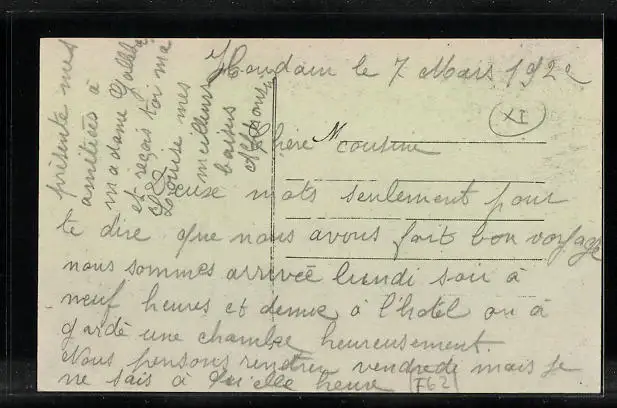 Houdain le 7 Mars 192
XI
Chère cousine
Deux mots seulement pour
te dire que nous avons fait bon voyage
nous sommes arrivée lundi soir à
neuf heures et demie à l'hotel on à
gardé une chambre heureusement.
Nous pensons rentrer vendredi mais je
ne sais à qu'elle heure
F62
présente mes
amitiées à
madame
et reçois toi ma
Louise mes
meilleurs
baisers